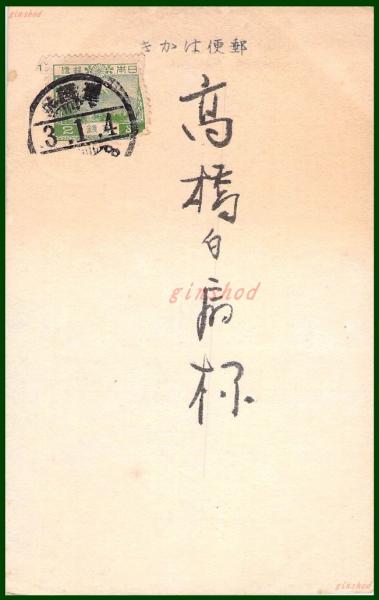 ginshod
郵便はかき
大日本帝國郵便
3.1.4
高橋白扇様
ginshod
ginshod